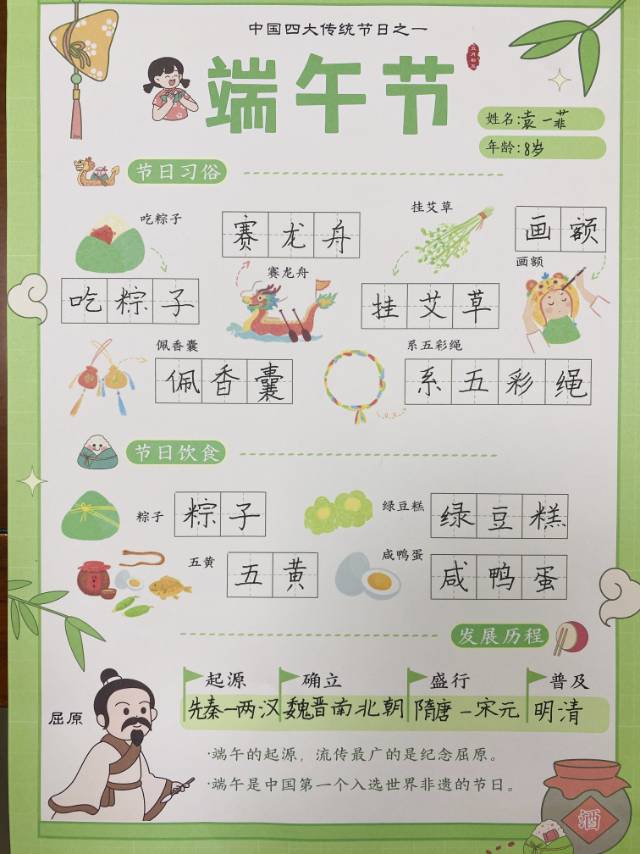 中国四大传统节日之一
端午节
姓名:袁一菲
年龄:8岁
节日习俗
吃粽子
赛龙舟
挂艾草
画额
吃粽子
赛龙舟
挂艾草
画额
佩香囊
佩香囊
系五彩绳
系五彩绳
节日饮食
粽子
粽子
绿豆糕
绿豆糕
五黄
五黄
咸鸭蛋
咸鸭蛋
发展历程
屈原
起源 确立 盛行 普及
先秦一两汉 魏晋南北朝 隋唐一宋元 明清
·端午的起源，流传最广的是纪念屈原。
·端午是中国第一个入选世界非遗的节日。
酒